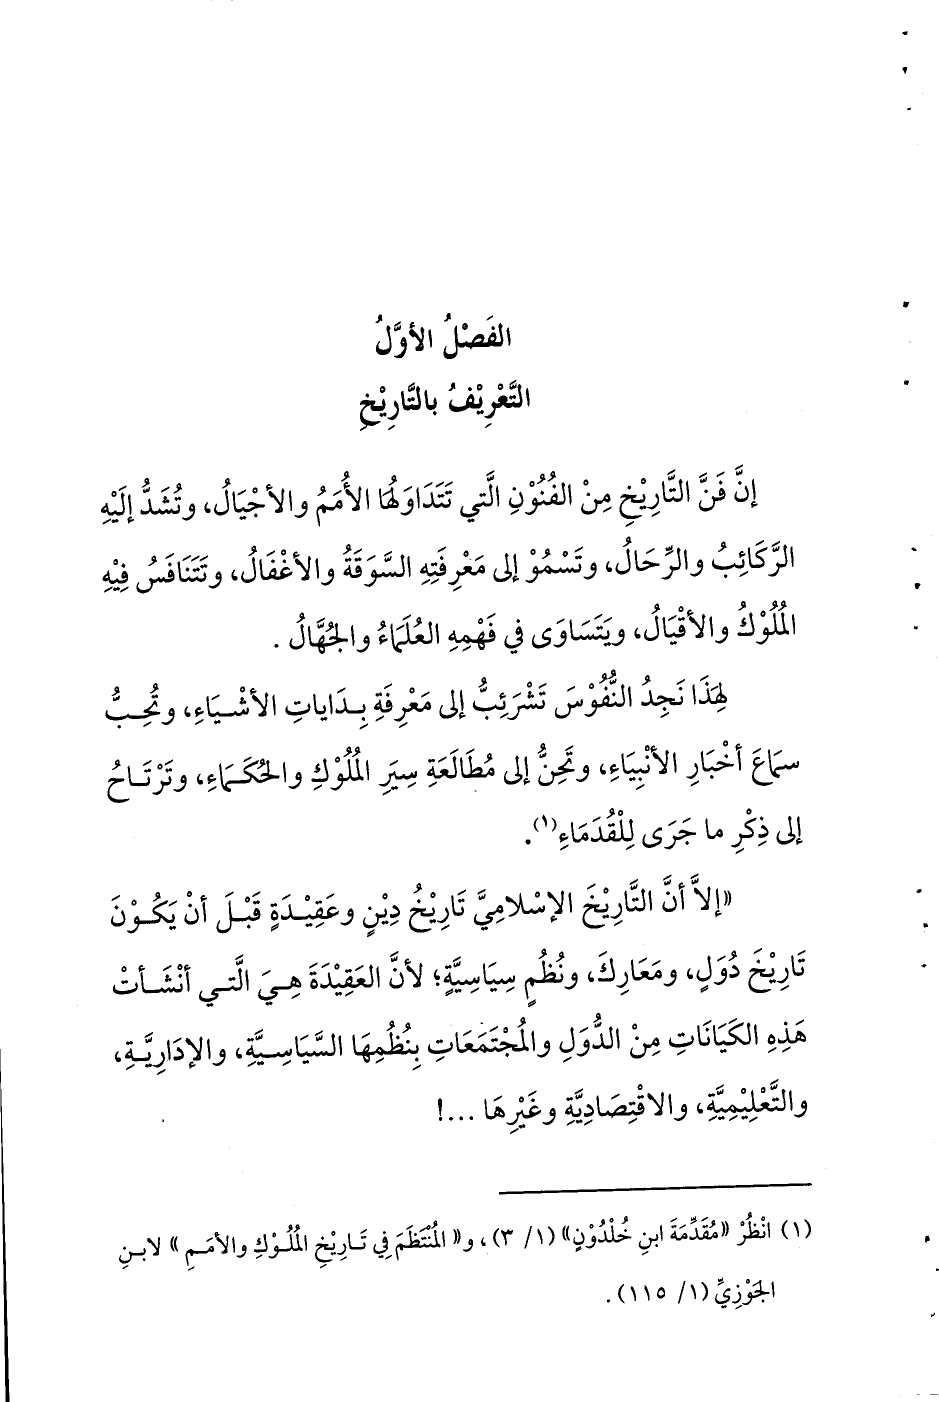 الفَصْلُ الأوَّلُ
التَّعْرِيْفُ بالتَّارِيْخِ
إنَّ فَنَّ التَّارِيْخِ مِنْ الفُنُوْنِ الَّتي تَتَدَاوَلُهَا الأُمَمُ والأجْيَالُ، وتُشَدُّ إلَيْهِ
الرَّكَائِبُ والرِّحَالُ، وتَسْمُوْ إلى مَعْرِفَتِهِ السَّوَقَةُ والأغْفَالُ، وتَتَنَافَسُ فِيْهِ
المُلُوْكُ والأقْيَالُ، ويَتَسَاوَى في فَهْمِهِ العُلَمَاءُ والجُهَّالُ .
لِهَذَا نَجِدُ النُّفُوْسَ تَشْرَئِبُّ إلى مَعْرِفَةِ بِدَاياتِ الأشْيَاءِ، وتُحِبُّ
سمَاعَ أخْبَارِ الأنْبِيَاءِ، وتَحِنُّ إلى مُطَالَعَةِ سِيَرِ المُلُوْكِ والحُكَمَاءِ، وتَرْتَاحُ
إلى ذِكْرِ ما جَرَى لِلْقُدَمَاءِ(١).
«إلاَّ أنَّ التَّارِيْخَ الإسْلامِيَّ تَارِيْخُ دِيْنٍ وعَقِيْدَةٍ قَبْلَ أنْ يَكُوْنَ
تَارِيْخَ دُوَلٍ، ومَعَارِكَ، ونُظُمٍ سِيَاسِيَّةٍ؛ لأنَّ العَقِيْدَةَ هِيَ الَّتي أنْشَأتْ
هَذِهِ الكَيَانَاتِ مِنْ الدُّوَلِ والمُجْتَمَعَاتِ بِنُظُمِهَا السَّيَاسِيَّةِ، والإدَارِيَّةِ،
والتَّعْلِيْمِيَّةِ، والاقْتِصَادِيَّةِ وغَيْرِهَا ...!
(١) انْظُرْ «مُقَدِّمَةَ ابنِ خُلْدُوْنٍ» (١/ ٣)، و« المُنْتَظَمَ فِي تَارِيْخِ المُلُوْكِ والأمَمِ » لابنِ
الجَوْزِيِّ (١/ ١١٥) .